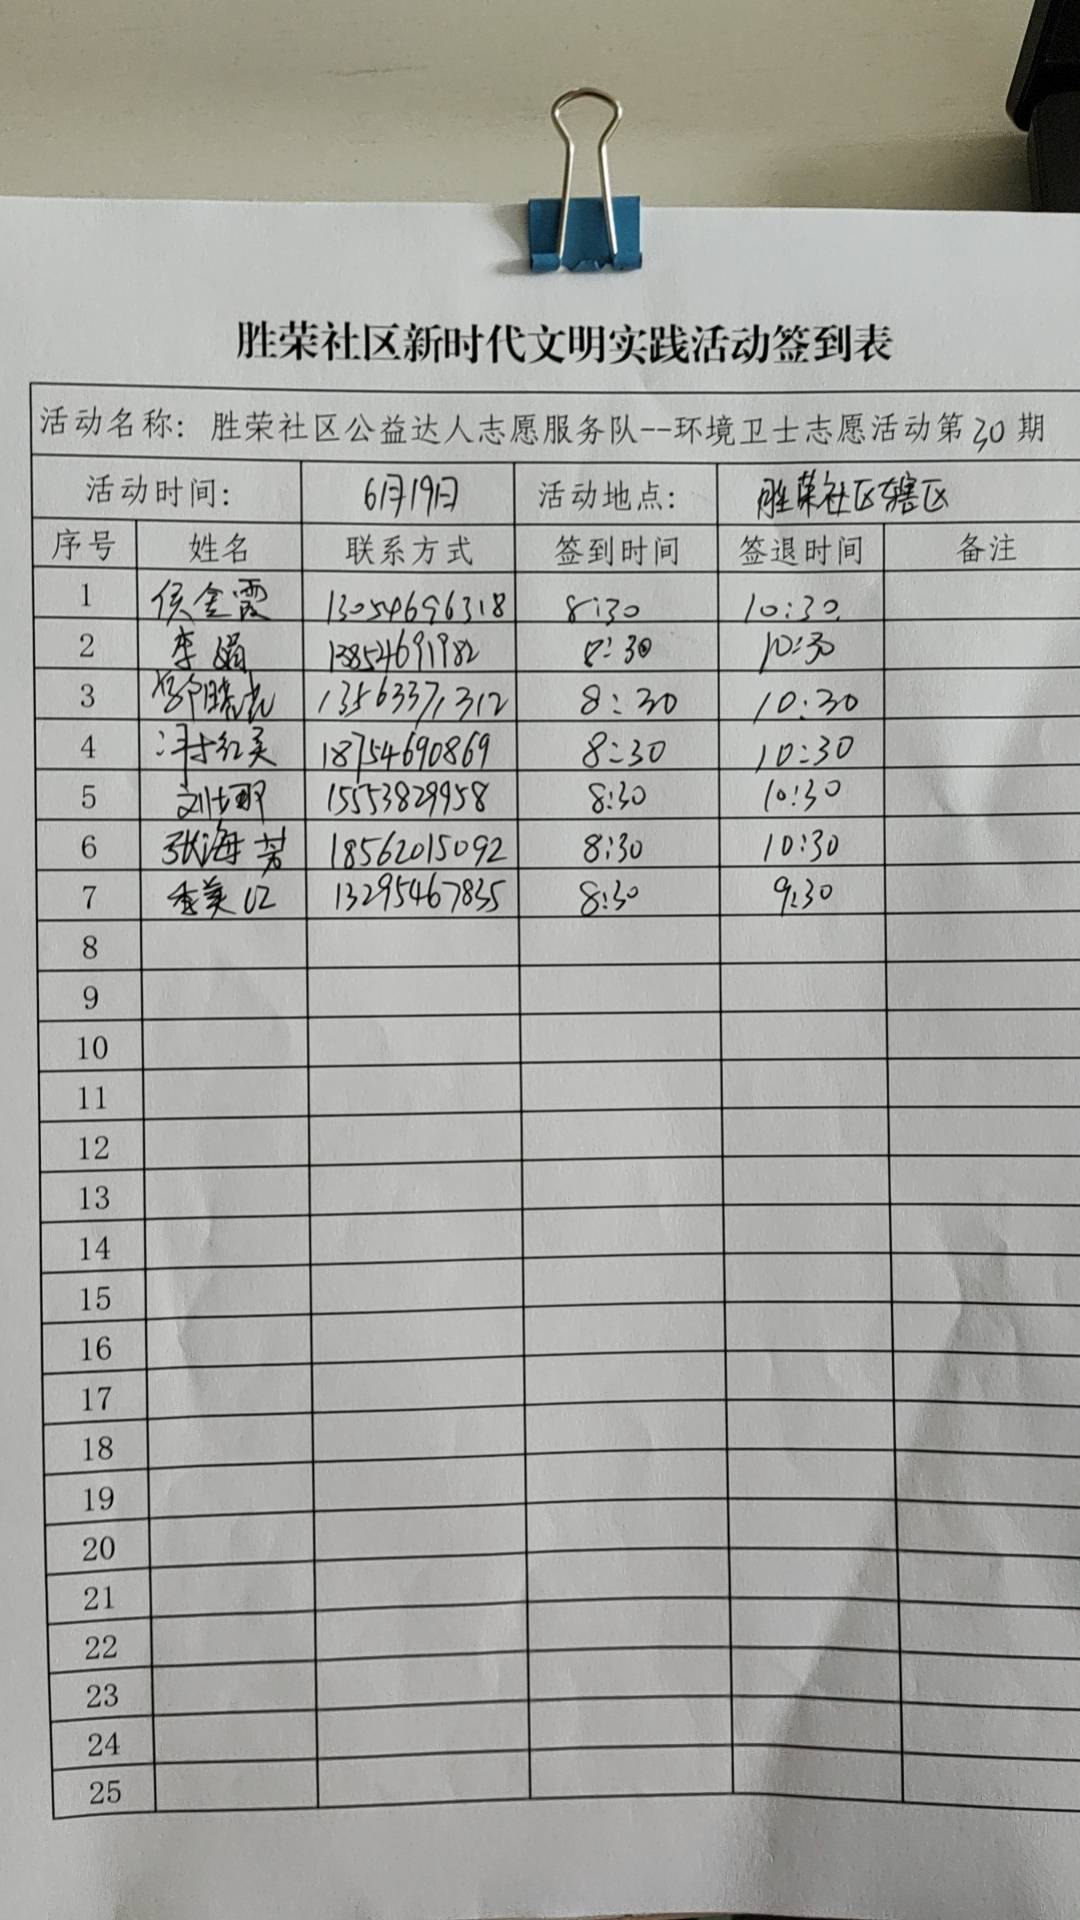 胜荣社区新时代文明实践活动签到表
活动名称：胜荣社区公益达人志愿服务队--环境卫士志愿活动第30期
活动时间： 6月19日 活动地点： 胜荣社区辖区
序号 姓名 联系方式 签到时间 签退时间 备注
1 侯金霞 13054696318 8:30 10:30
2 李娟 13854691982 8:30 10:30
3 13563371312 8:30 10:30
4 18754690869 8:30 10:30
5 15553829958 8:30 10:30
6 张海芳 18562015092 8:30 10:30
7 13295467835 8:30 9:30
8
9
10
11
12
13
14
15
16
17
18
19
20
21
22
23
24
25